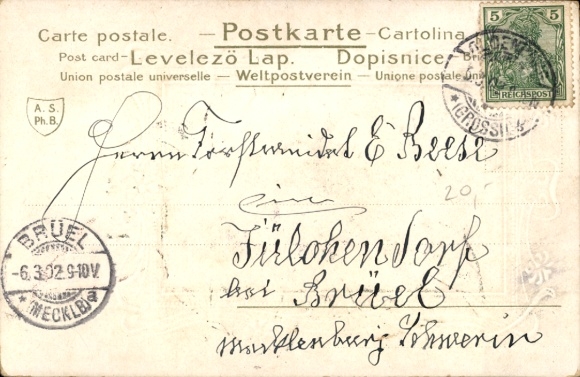 Carte postale. — Postkarte — Cartolina
Post card - Levelező Lap. Dopisnice
Union postale universelle — Weltpostverein — Unione postale
5 5
REICHSPOST
A. S.
Ph. B.
Herrn Forstkandidat E
in
20,-
bei Brüel
Mecklenburg Schwerin
BRÜEL
-6.3.02.9-10V.
* (MECKLB) a